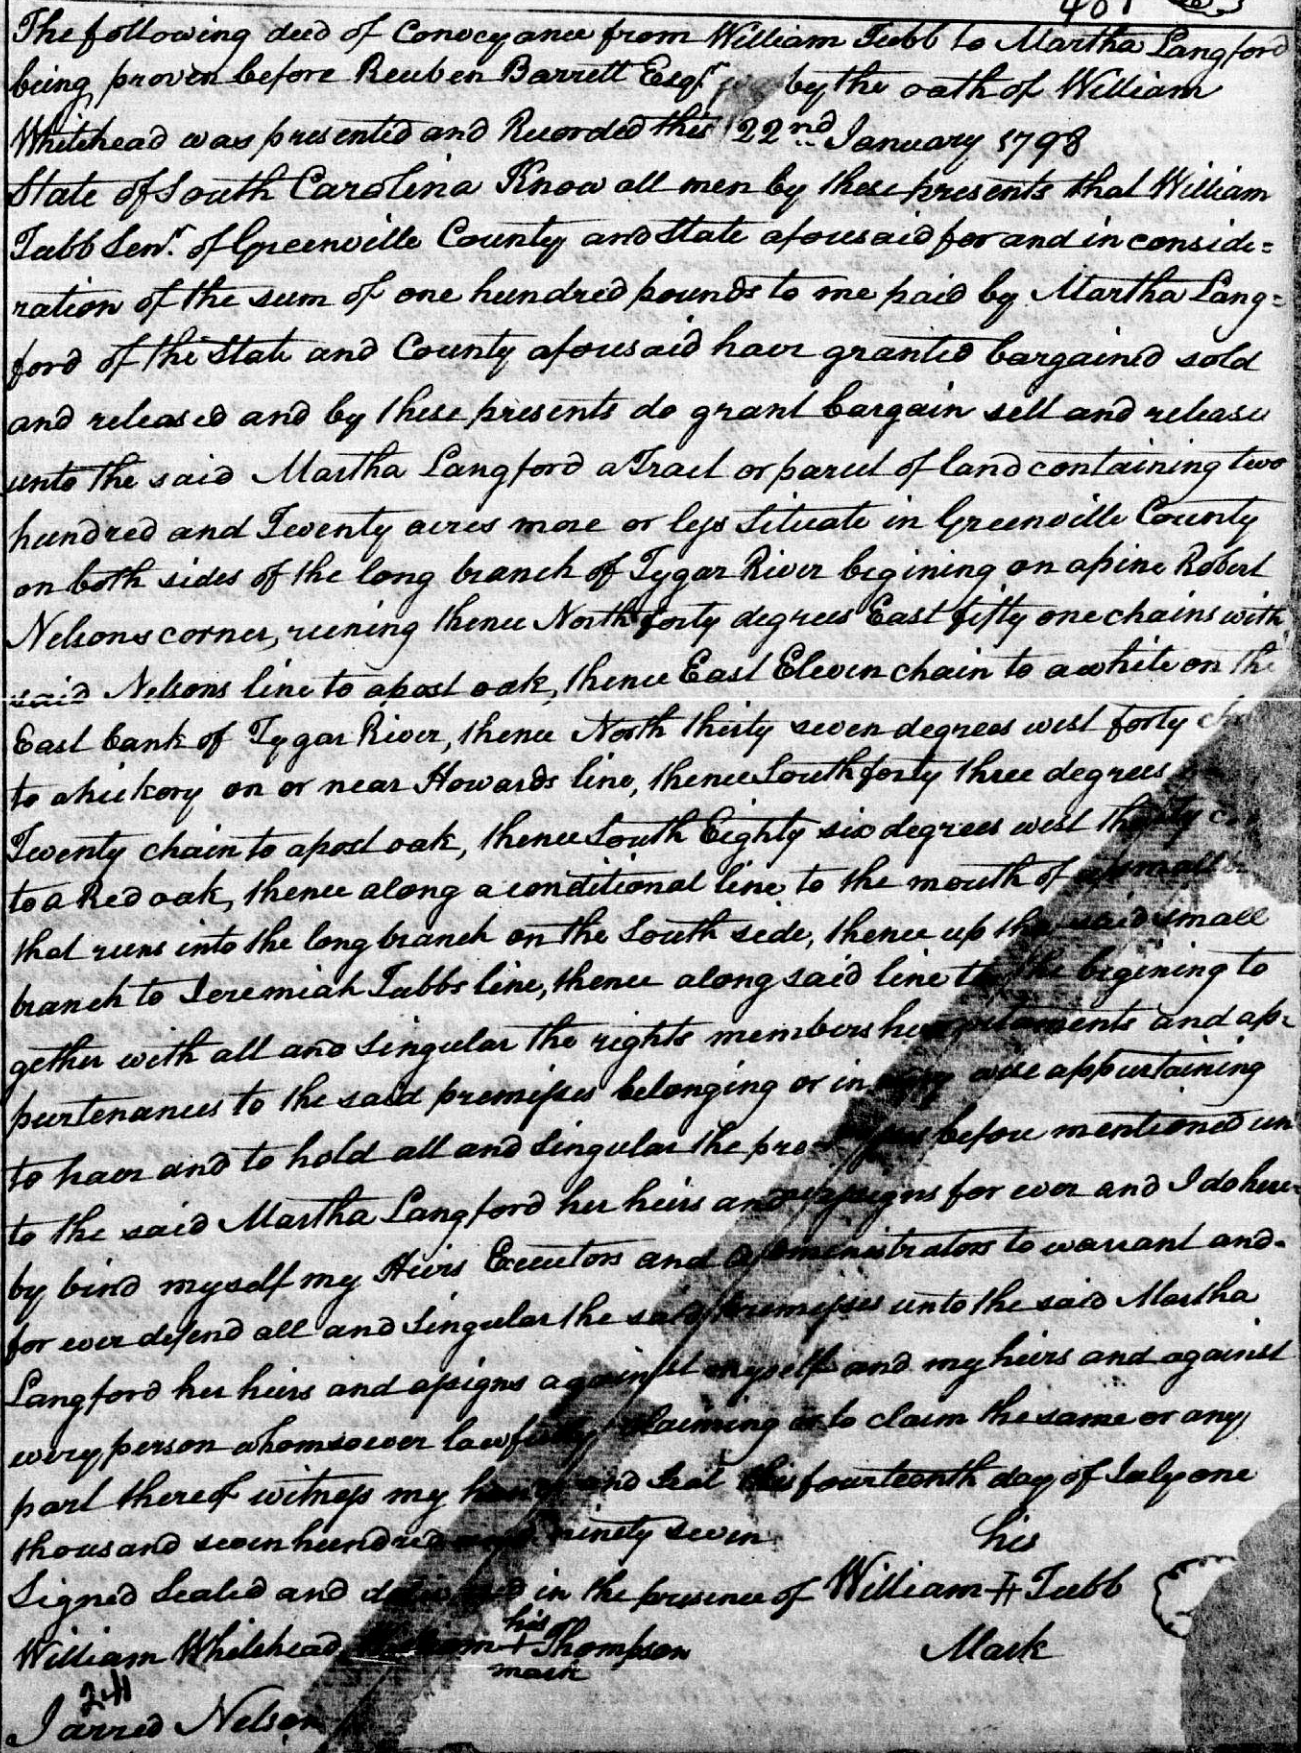 401
The following deed of Conveyance from William Tubb to Martha Langford
being proven before Reuben Barrett Esqr. by the oath of William
Whitehead was presented and Recorded this 22nd January 1798
State of South Carolina Know all men by these presents that William
Tubb Senr. of Greenville County and State aforesaid for and in conside=
ration of the sum of one hundred pounds to me paid by Martha Lang=
ford of the State and County aforesaid have granted bargained sold
and released and by these presents do grant bargain sell and release
unto the said Martha Langford a Tract or parcel of land containing two
hundred and Twenty acres more or less Situate in Greenville County
on both sides of the long branch of Tygar River begining on a pine Robert
Nelsons corner, runing thence North forty degrees East fifty one chains with
said Nelsons line to a post oak, thence East Eleven chain to a white on the
East bank of Tygar River, thence North thirty seven degrees west forty
to a hickory on or near Howards line, thence South forty three degrees
Twenty chain to a post oak, thence South Eighty six degrees west thirty
to a Red oak, thence along a conditional line to the mouth of a small
that runs into the long branch on the South side, thence up the said small
branch to Jeremiah Tubbs line, thence along said line to the begining to
gether with all and Singular the rights members hereditaments and ap=
purtenances to the said premises belonging or in any wise appurtaining
to have and to hold all and Singular the premises before mentioned un
to the said Martha Langford her heirs and assigns for ever and I do here=
by bind myself my Heirs Executors and administrators to warrant and
for ever defend all and Singular the said premises unto the said Martha
Langford her heirs and assigns against myself and my heirs and against
every person whomsoever lawfully claiming or to claim the same or any
part thereof witness my hand and Seal this fourteenth day of July one
thousand seven hundred and ninety seven his
Signed Sealed and delivered in the presence of William H Tubb
his
William Whitehead, William + Thompson Mark
mark
241
Jarred Nelson